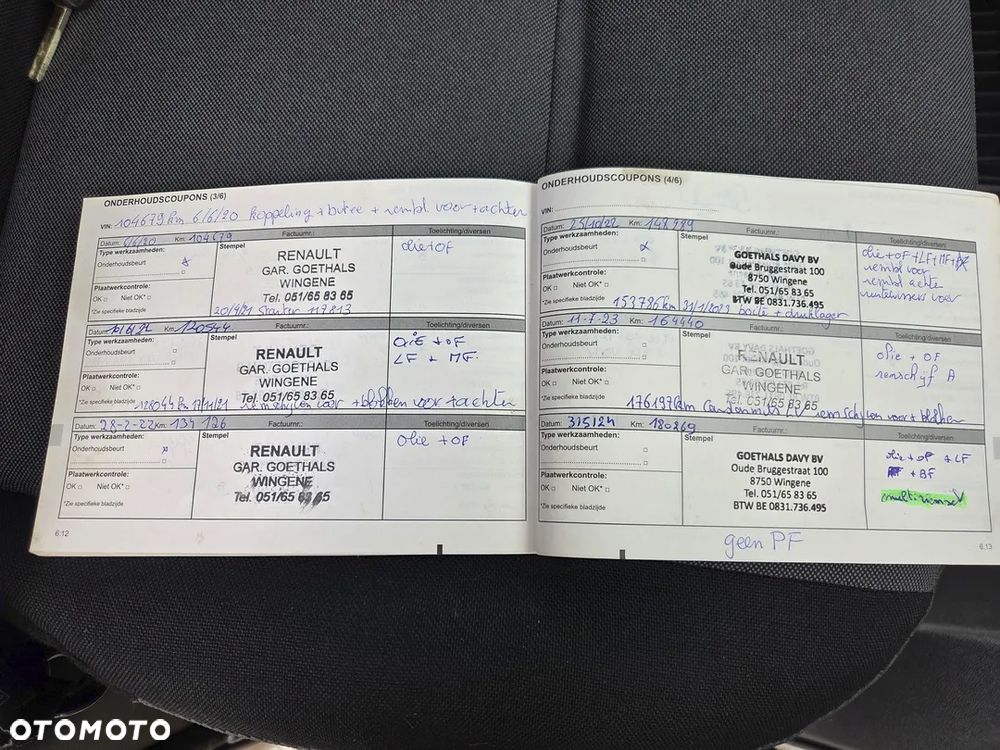 ONDERHOUDSCOUPONS (3/6)
VIN: 104679 km 6/6/20 koppeling + butee + rembl. voor + achter
Datum: 6/6/20 Km: 104679 Factuurnr.: Toelichting/diversen
Type werkzaamheden: Stempel
Onderhoudsbeurt x
olie + OF
RENAULT
GAR. GOETHALS
WINGENE
Tel. 051/65 83 65
Plaatwerkcontrole:
OK Niet OK*
*Zie specifieke bladzijde
20/9/21 Starter 117813
Datum: Km: 120544 Factuurnr.: Toelichting/diversen
Type werkzaamheden: Stempel
Onderhoudsbeurt
OliE + OF
LF + MF.
RENAULT
GAR. GOETHALS
WINGENE
Tel. 051/65 83 65
Plaatwerkcontrole:
OK Niet OK*
*Zie specifieke bladzijde
128044 km 17/11/21 remschijven voor + blokken voor + achter
Datum: 28-2-22 Km: 134 126 Factuurnr.: Toelichting/diversen
Type werkzaamheden: Stempel
Onderhoudsbeurt x
Olie + OF
RENAULT
GAR. GOETHALS
WINGENE
Tel. 051/65 83 65
Plaatwerkcontrole:
OK Niet OK*
*Zie specifieke bladzijde
6.12
ONDERHOUDSCOUPONS (4/6)
VIN:
Datum: 25/10/22 Km: 148989 Factuurnr.: Toelichting/diversen
Type werkzaamheden: Stempel
Onderhoudsbeurt x
olie + OF + LF + MF +
rembl voor
rembl achter
voor
GOETHALS DAVY BV
Oude Bruggestraat 100
8750 Wingene
Tel. 051/65 83 65
BTW BE 0831.736.495
Plaatwerkcontrole:
OK Niet OK*
*Zie specifieke bladzijde
153786 km 31/1/2023 + druklager
Datum: 11-7-23 Km: 164440 Factuurnr.: Toelichting/diversen
Type werkzaamheden: Stempel
Onderhoudsbeurt
olie + OF
remschijf A
RENAULT
GAR. GOETHALS
WINGENE
Tel. 051/65 83 65
Plaatwerkcontrole:
OK Niet OK*
*Zie specifieke bladzijde
176197 km remschijven voor + blokken
Datum: 3/5/24 Km: 180269 Factuurnr.: Toelichting/diversen
Type werkzaamheden: Stempel
Onderhoudsbeurt
olie + OF + LF
+ BF
multiriemset
GOETHALS DAVY BV
Oude Bruggestraat 100
8750 Wingene
Tel. 051/65 83 65
BTW BE 0831.736.495
Plaatwerkcontrole:
OK Niet OK*
*Zie specifieke bladzijde
geen PF
6.13
OTOMOTO